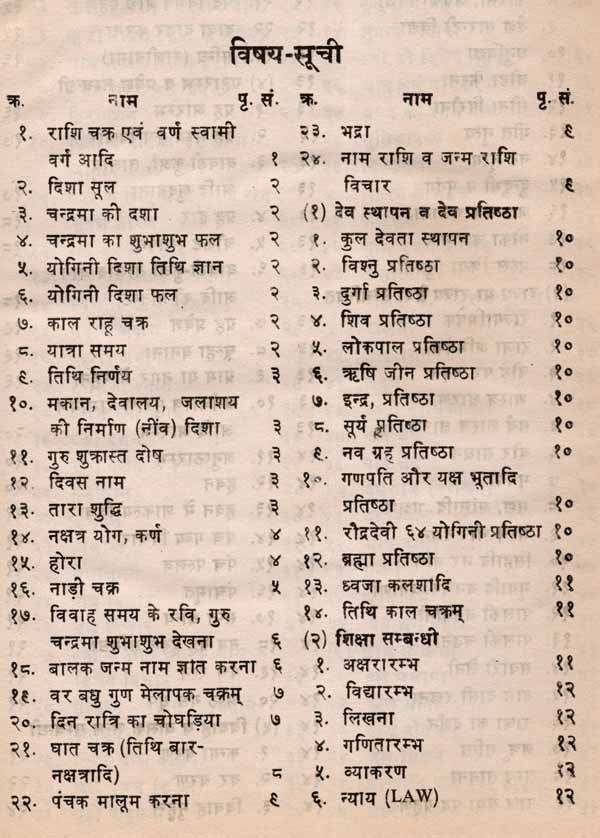 विषय-सूची
क्र. नाम पृ. सं.
१. राशि चक्र एवं वर्ण स्वामी
वर्ग आदि १
२. दिशा सूल २
३. चन्द्रमा की दशा २
४. चन्द्रमा का शुभाशुभ फल २
५. योगिनी दिशा तिथि ज्ञान २
६. योगिनी दिशा फल २
७. काल राहू चक्र २
८. यात्रा समय २
९. तिथि निर्णय ३
१०. मकान, देवालय, जलाशय
की निर्माण (नींव) दिशा ३
११. गुरु शुक्रास्त दोष ३
१२. दिवस नाम ३
१३. तारा शुद्धि ३
१४. नक्षत्र योग, कर्ण ४
१५. होरा ४
१६. नाड़ी चक्र ५
१७. विवाह समय के रवि, गुरु
चन्द्रमा शुभाशुभ देखना ६
१८. बालक जन्म नाम ज्ञात करना ६
१९. वर बधु गुण मेलापक चक्रम् ७
२०. दिन रात्रि का चोघडिया ७
२१. घात चक्र (तिथि बार-
नक्षत्रादि) ८
२२. पंचक मालूम करना ९
क्र. नाम पृ. सं.
२३. भद्रा ९
२४. नाम राशि व जन्म राशि
विचार ९
(१) देव स्थापन व देव प्रतिष्ठा
१. कुल देवता स्थापन १०
२. विश्नु प्रतिष्ठा १०
३. दुर्गा प्रतिष्ठा १०
४. शिव प्रतिष्ठा १०
५. लोकपाल प्रतिष्ठा १०
६. ऋषि जीन प्रतिष्ठा १०
७. इन्द्र, प्रतिष्ठा १०
८. सूर्य प्रतिष्ठा १०
९. नव ग्रह प्रतिष्ठा १०
१०. गणपति और यक्ष भूतादि
प्रतिष्ठा १०
११. रौद्रदेवी ६४ योगिनी प्रतिष्ठा १०
१२. ब्रह्मा प्रतिष्ठा १०
१३. ध्वजा कलशादि ११
१४. तिथि काल चक्रम् ११
(२) शिक्षा सम्बन्धी
१. अक्षरारम्भ ११
२. विद्यारम्भ १२
३. लिखना १२
४. गणितारम्भ १२
५. व्याकरण १२
६. न्याय (LAW) १२